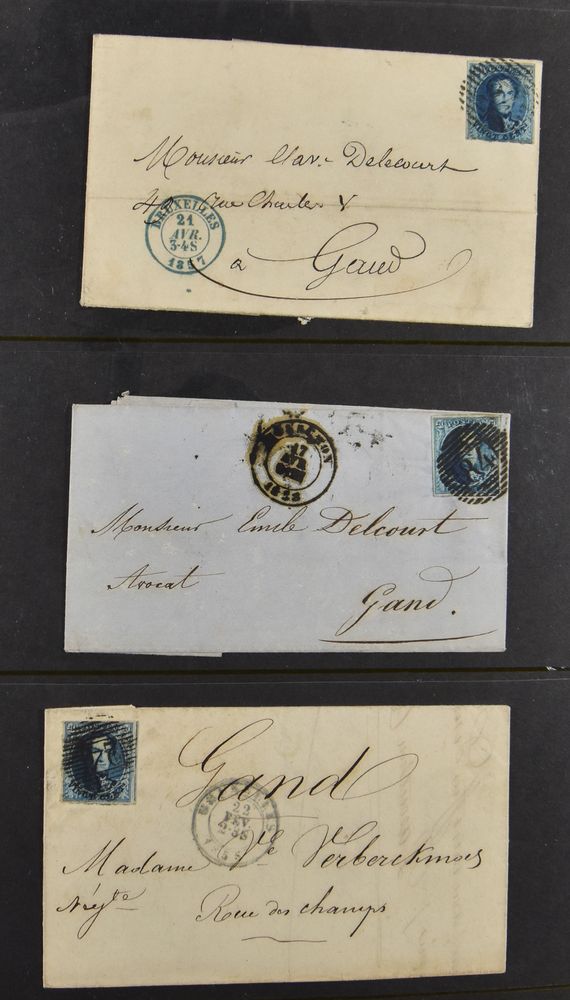 Monsieur Clav. Delecourt
42 rue Charles V
à Gand
BRUXELLES
21
AVR.
3-4S
1857
VINGT CENTS
17
1858
84
Monsieur Emile Delcourt
Avocat
Gand.
Gand
22
FEV.
Madame Ve Verberckmoes
Négte
Rue des champs